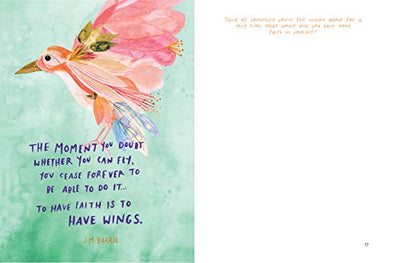 Think of something you've felt unsure about for a
very long. What would help you have more
faith in yourself?
THE MOMENT YOU DOUBT
WHETHER YOU CAN FLY,
YOU CEASE FOREVER TO
BE ABLE TO DO IT...
TO HAVE FAITH IS TO
HAVE WINGS.
J.M. BARRIE